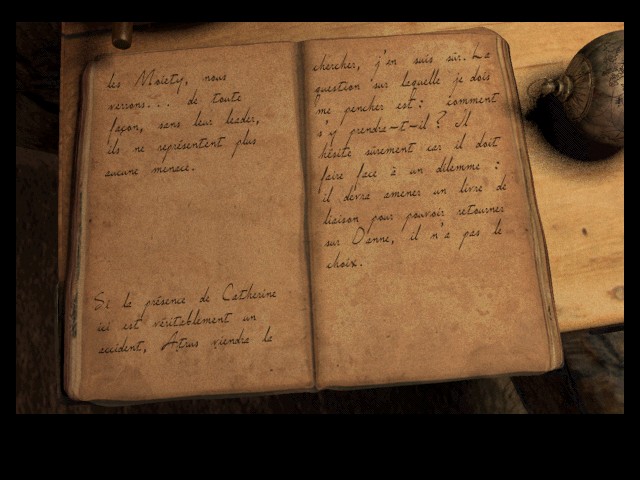 les Moiety, nous
verrons... de toute
façon, sans leur leader,
ils ne représentent plus
aucune menace.
Si la présence de Catherine
ici est véritablement un
accident, Atrus viendra la
chercher, j'en suis sûr. La
question sur laquelle je dois
me pencher est : comment
s'y prendra-t-il ? Il
hésite sûrement car il doit
faire face à un dilemme :
il devra amener un livre de
liaison pour pouvoir retourner
sur D'anne, il n'a pas le
choix.